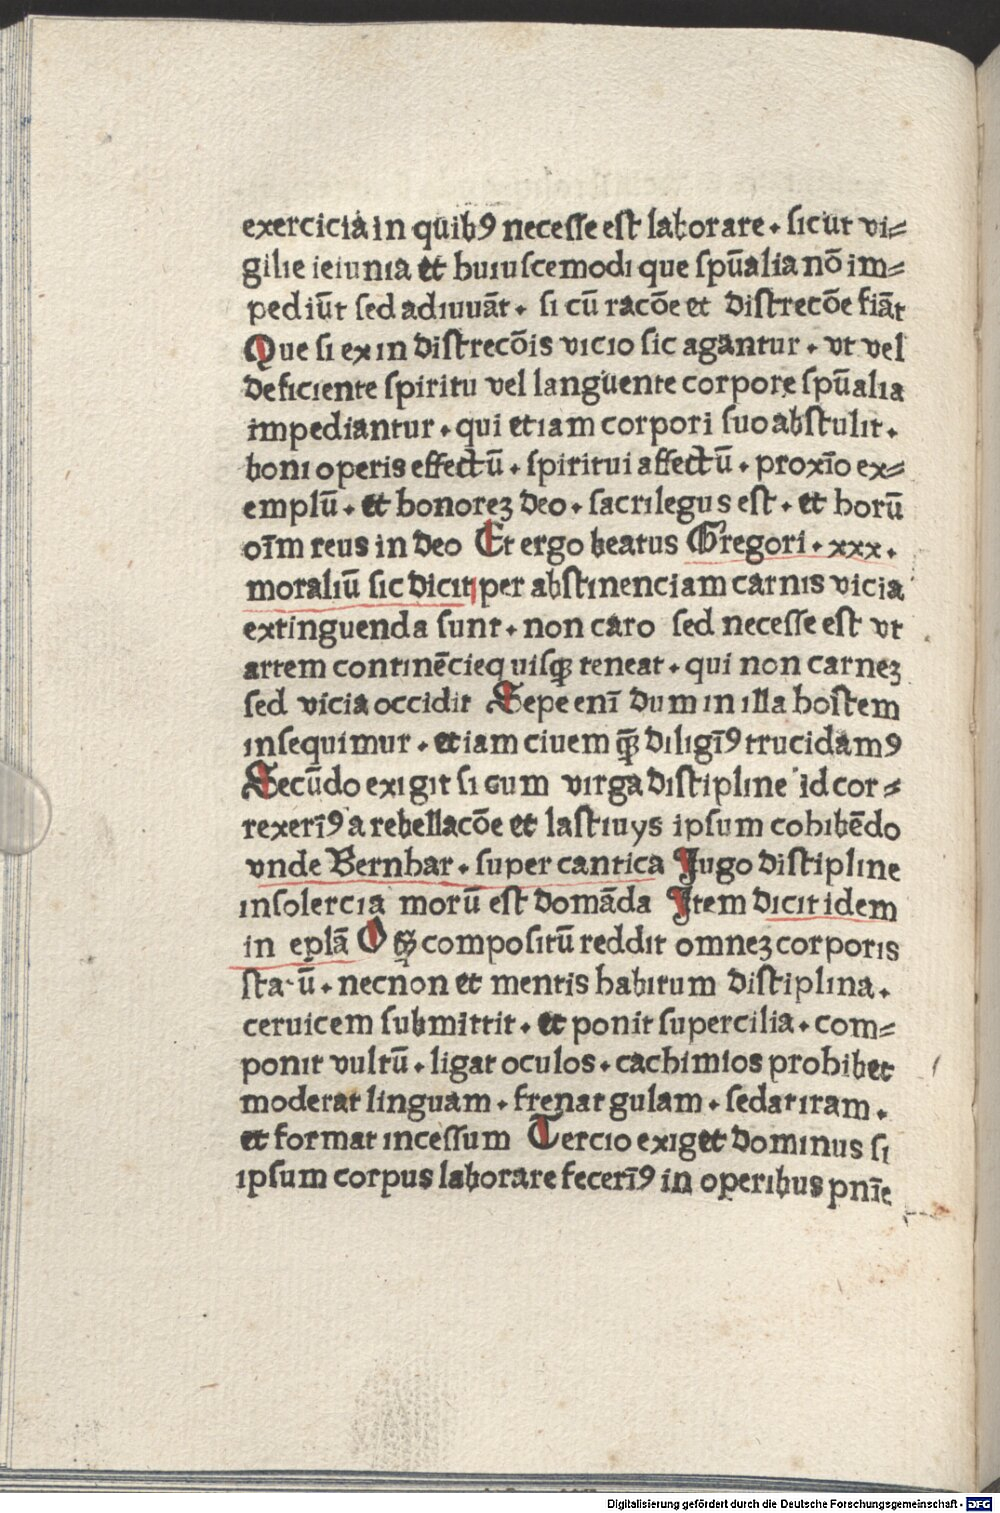 exercicia in quibꝰ necesse est laborare · sicut vi⸗
gilie ieiunia et huiuscemodi que spūalia nō im⸗
pediūt sed adiuuāt · si cū racōe et distrecōe fiāt
Que si ex in distrecōis vicio sic agantur · vt vel
deficiente spiritu vel languente corpore spūalia
impediantur · qui etiam corpori suo abstulit ·
boni operis effectū · spiritui affectū · proxīo ex⸗
emplū · et honoreꝫ deo · sacrilegus est · et horū
oīm reus in deo Et ergo beatus Gregori · xxx ·
moraliū sic dicit per abstinenciam carnis vicia
extinguenda sunt · non caro sed necesse est vt
artem continēcie quisqꝫ teneat · qui non carneꝫ
sed vicia occidit Sepe enī dum in illa hostem
insequimur · etiam ciuem quē diligīꝰ trucidamꝰ
Secūdo exigit si cum virga distipline id cor⸗
rexerīꝰ a rebellacōe et lastiuys ipsum cohibēdo
vnde Bernhar · super cantica Jugo distipline
insolercia morū est domāda Item dicit idem
in eplā O qꝫ compositū reddit omneꝫ corporis
sta ū · necnon et mentis habitum distiplina ·
ceruicem submittit · et ponit supercilia · com⸗
ponit vultū · ligat oculos · cachimios prohibet
moderat linguam · frenat gulam · sedat iram ·
et format incessum Tercio exiget dominus si
ipsum corpus laborare fecerīꝰ in operibus pnīe
Digitalisierung gefördert durch die Deutsche Forschungsgemeinschaft - DFG